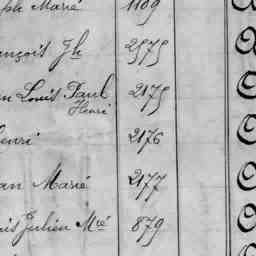 ph Marié 1109
ançois Jh 2575
n Louis Paul 2175
Henri
enri 2176
an Marié 2177
is Julien Mié 879